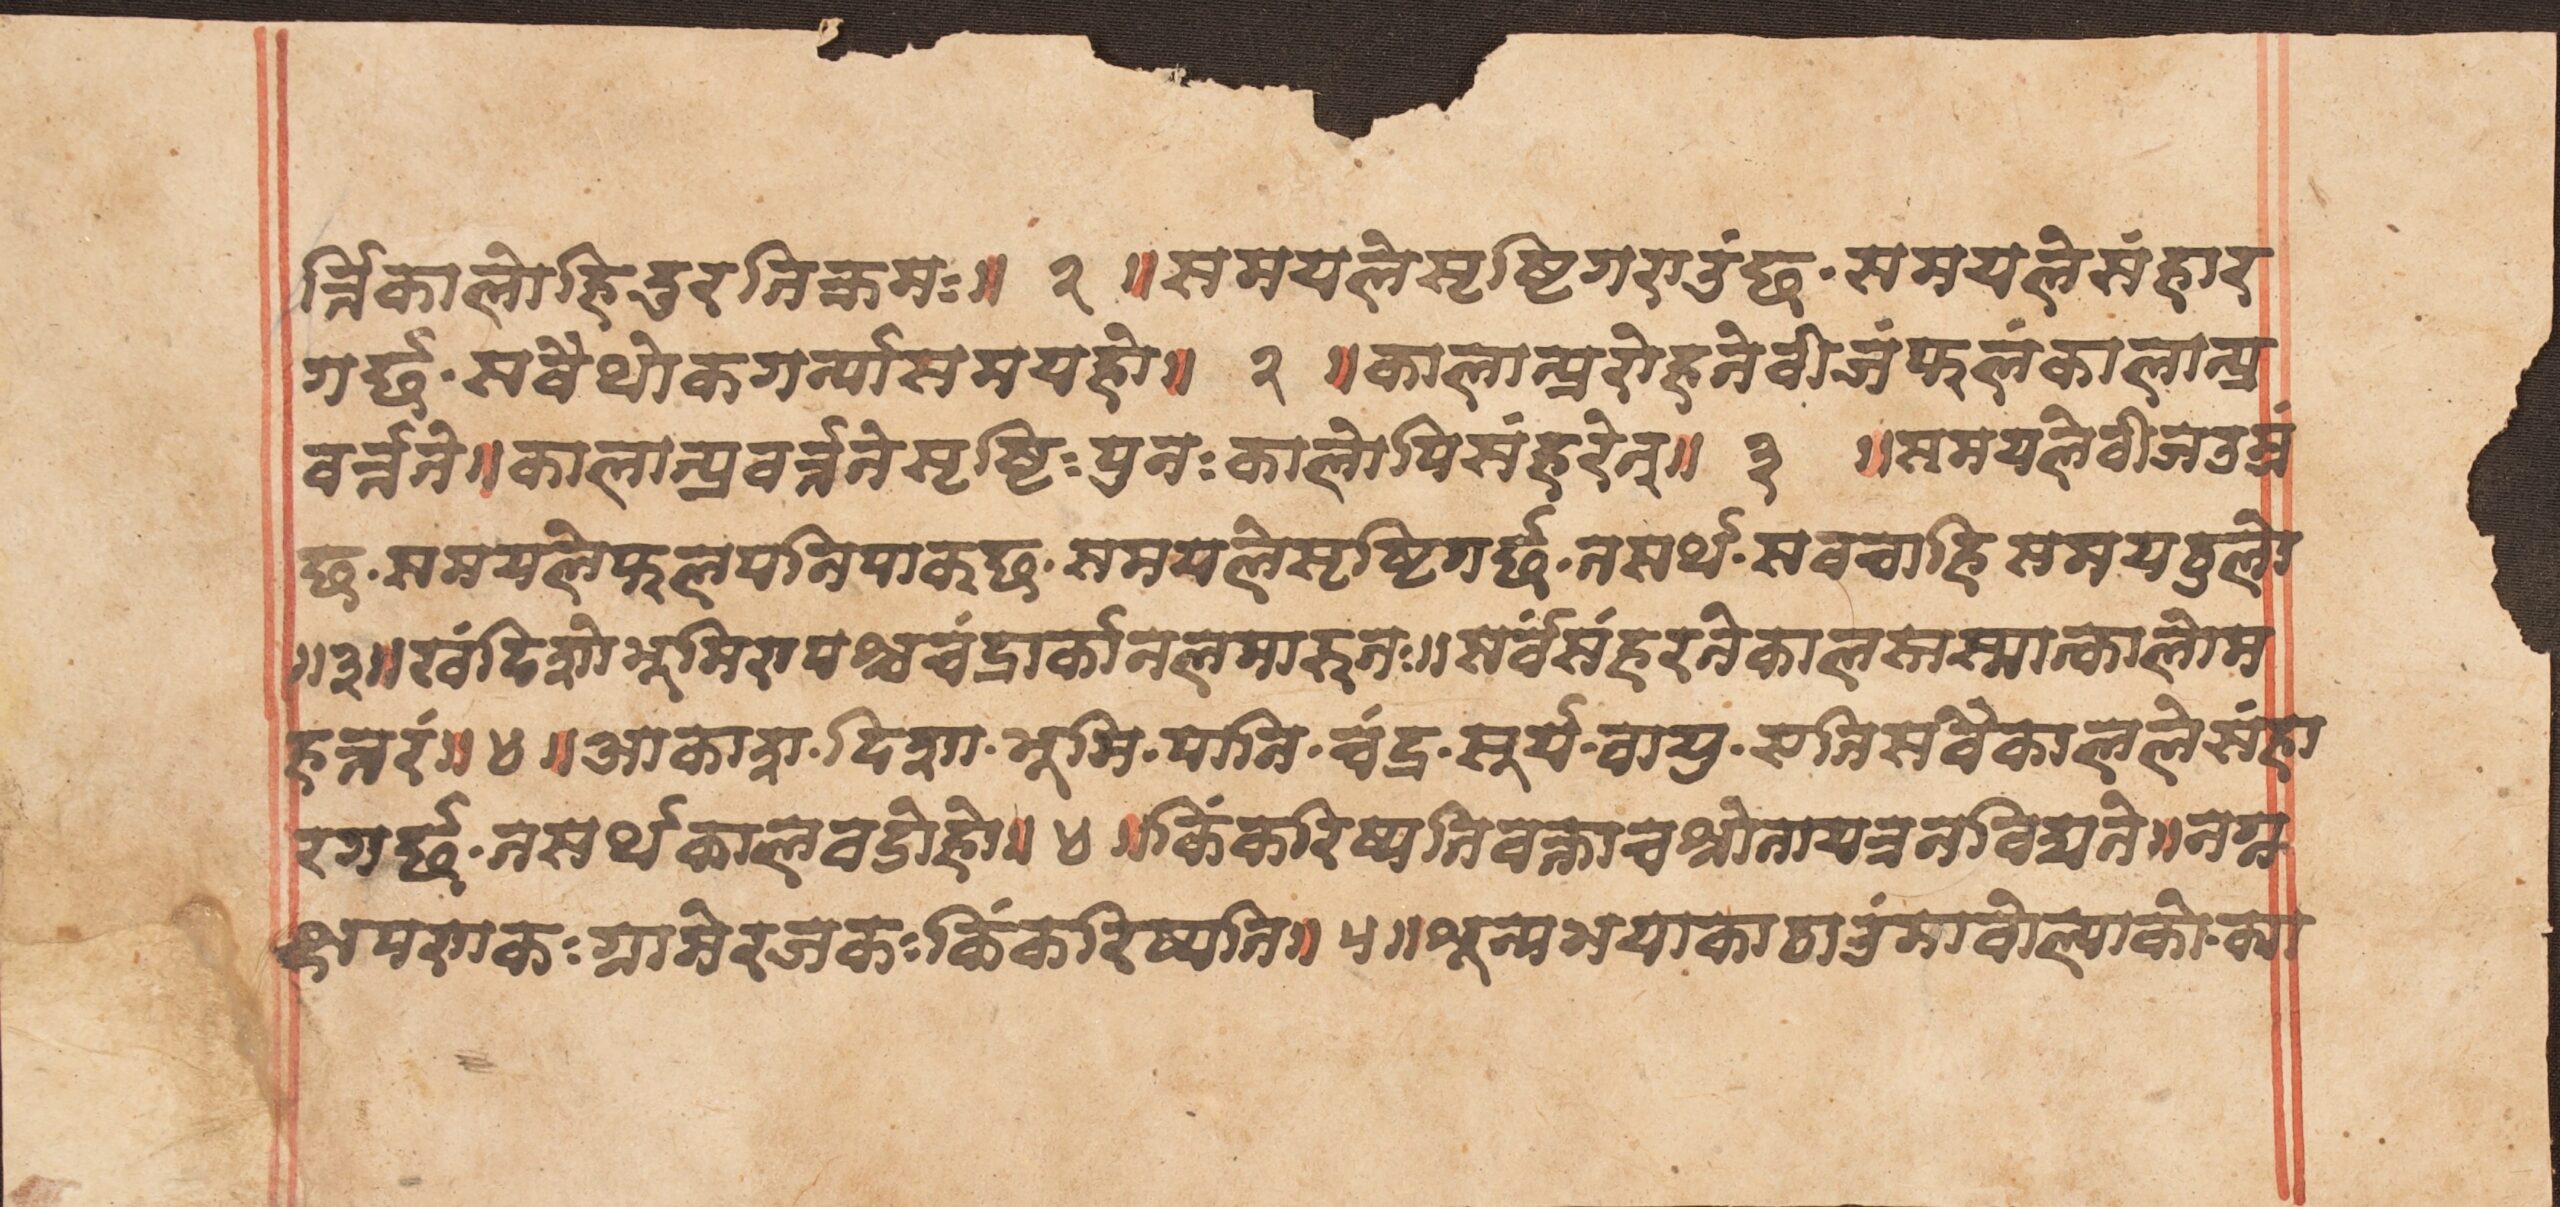 र्त्तिकालोहिदुरतिक्रमः॥ २ ॥समयलेसृष्टिगराउंछ·समयलेसंहार
गर्छ·सबैथोकगर्न्यासमयहो॥ २ ॥कालात्प्ररोहतेवीजंफलंकालात्प्र
वर्त्तते॥कालात्प्रवर्त्ततेसृष्टिःपुनःकालोपिसंहरेत्॥ ३ ॥समयलेवीजउम्रं
छ·समयलेफलपनिपाकछ·समयलेसृष्टिगर्छ·तसर्थ·सबचाहिसमयठुलो
॥३॥खंदिशोभूमिरापश्चचंद्रार्कानलमारुतः॥सर्वंसंहरतेकालस्तस्मात्कालोम
हत्तरं॥४॥आकाश·दिशा·भूमि·पानि·चंद्र·सूर्य·वायु·एतिसबैकाललेसंहा
रगर्छ·तसर्थकालवडोहो॥ ४ ॥किंकरिष्यतिवक्ताचश्रोतायत्रनविद्यते॥नग्न
क्षपणकःग्रामेरजकःकिंकरिष्यति॥ ५॥शून्यभयाकाठाउंमावोल्याको·क्या